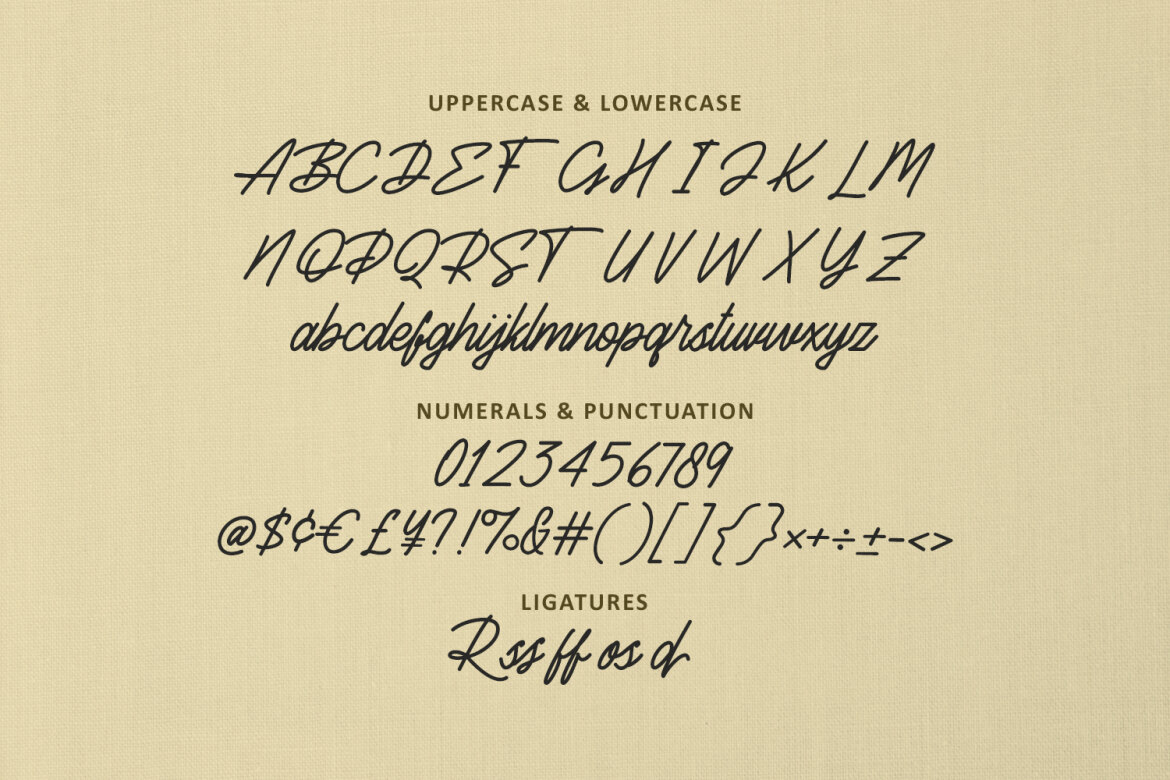 UPPERCASE & LOWERCASE
ABCDEF GHIJKLM
NOPQRST UVWXYZ
abcdefghijklmnopqrstuvwxyz
NUMERALS & PUNCTUATION
0123456789
@$¢€£¥?!%&#()[]{}×+÷±-<>
LIGATURES
R ss ff os d